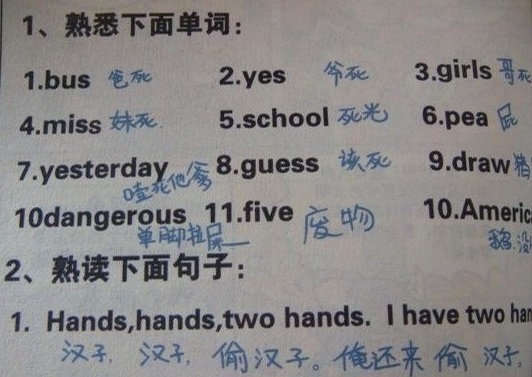 1、熟悉下面单词：
1.bus 爸死 2.yes 爷死 3.girls 哥死
4.miss 妹死 5.school 死光 6.pea 屁
7.yesterday 噎死他爹 8.guess 该死 9.draw 猪
10dangerous 单脚拉屎 11.five 废物 10.Americ
2、熟读下面句子：
1. Hands,hands,two hands. I have two han
汉子, 汉子, 偷汉子。俺还来偷汉子.